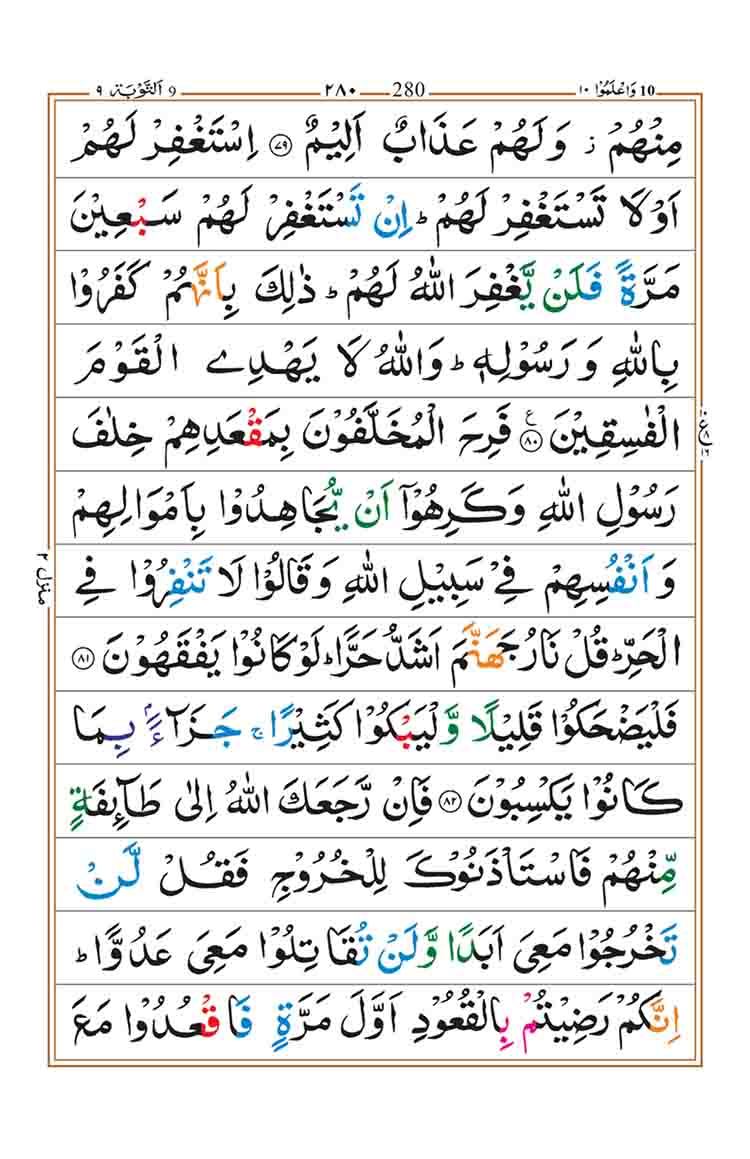 10 وَاعْلَمُوْۤا ١٠ 280 ٢٨٠ 9 اَلتَّوْبَة ٩
مِنْهُمْ ز وَلَهُمْ عَذَابٌ اَلِيْمٌ ۝٧٩ اِسْتَغْفِرْ لَهُمْ
اَوْلَا تَسْتَغْفِرْ لَهُمْ ؕ اِنْ تَسْتَغْفِرْ لَهُمْ سَبْعِيْنَ
مَرَّةً فَلَنْ يَّغْفِرَ اللّٰهُ لَهُمْ ؕ ذٰلِكَ بِاَنَّهُمْ كَفَرُوْا
بِاللّٰهِ وَ رَسُوْلِهٖ ؕ وَاللّٰهُ لَا يَهْدِے الْقَوْمَ
الْفٰسِقِيْنَ ۝٨٠ ع فَرِحَ الْمُخَلَّفُوْنَ بِمَقْعَدِهِمْ خِلٰفَ
رَسُوْلِ اللّٰهِ وَكَرِهُوْۤا اَنْ يُّجَاهِدُوْا بِاَمْوَالِهِمْ
وَ اَنْفُسِهِمْ فِيْ سَبِيْلِ اللّٰهِ وَ قَالُوْا لَا تَنْفِرُوْا فِے
الْحَرِّ ؕ قُلْ نَارُ جَهَنَّمَ اَشَدُّ حَرًّا ؕ لَوْ كَانُوْا يَفْقَهُوْنَ ۝٨١
فَلْيَضْحَكُوْا قَلِيْلًا وَّلْيَبْكُوْا كَثِيْرًا ج جَزَآءًۢ بِمَا
كَانُوْا يَكْسِبُوْنَ ۝٨٢ فَاِنْ رَّجَعَكَ اللّٰهُ اِلٰى طَآئِفَةٍ
مِّنْهُمْ فَاسْتَاْذَنُوْكَ لِلْخُرُوْجِ فَقُلْ لَّنْ
تَخْرُجُوْا مَعِىَ اَبَدًا وَّلَنْ تُقَاتِلُوْا مَعِىَ عَدُوًّا ؕ
اِنَّكُمْ رَضِيْتُمْ بِالْقُعُوْدِ اَوَّلَ مَرَّةٍ فَاقْعُدُوْا مَعَ
منزل ٢